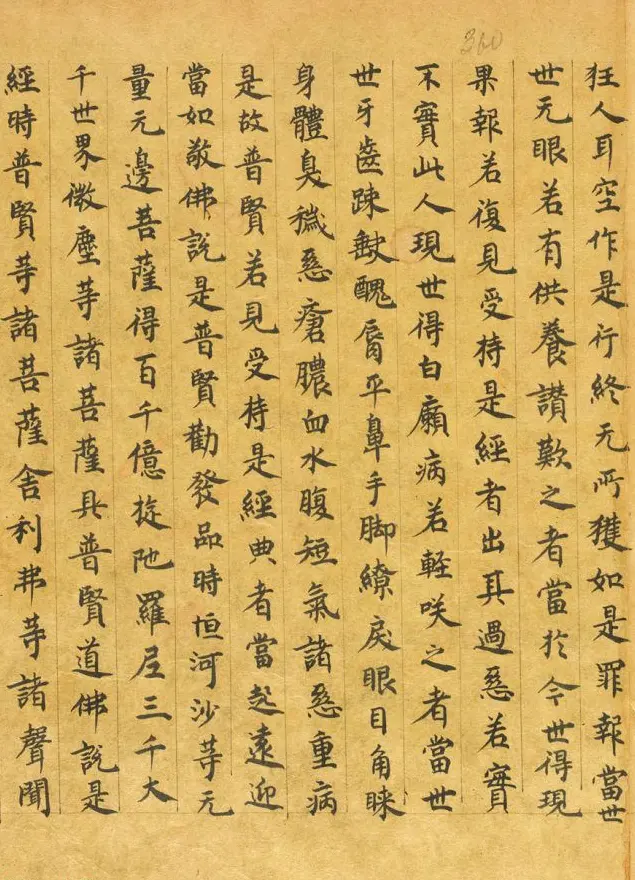 360
狂人耳空作是行終无所獲如是罪報當世
世无眼若有供養讚歎之者當於今世得現
果報若復見受持是經者出其過惡若實
不實此人現世得白癩病若輕咲之者當世
世牙齒踈缺醜脣平鼻手脚繚戾眼目角睞
身體臭穢惡瘡膿血水腹短氣諸惡重病
是故普賢若見受持是經典者當起遠迎
當如敬佛說是普賢勸發品時恒河沙等无
量无邊菩薩得百千億旋陁羅尼三千大
千世界微塵等諸菩薩具普賢道佛說是
經時普賢等諸菩薩舍利弗等諸聲聞